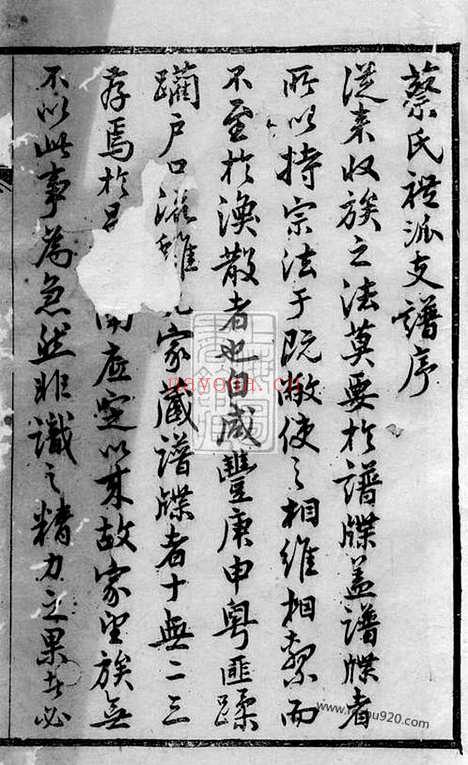 蔡氏禮派支譜序
從來收族之法莫要於譜牒蓋譜牒者
所以持宗法于既敝使之相維相繫而
不至於渙散者也自咸豐庚申粵匪蹂
躪戶口流離 家藏譜牒者十無二三
存焉於 開庄定以來故家望族無
不以此事為急然非識之精力之果者必
nayona.cn
jiapu920.com